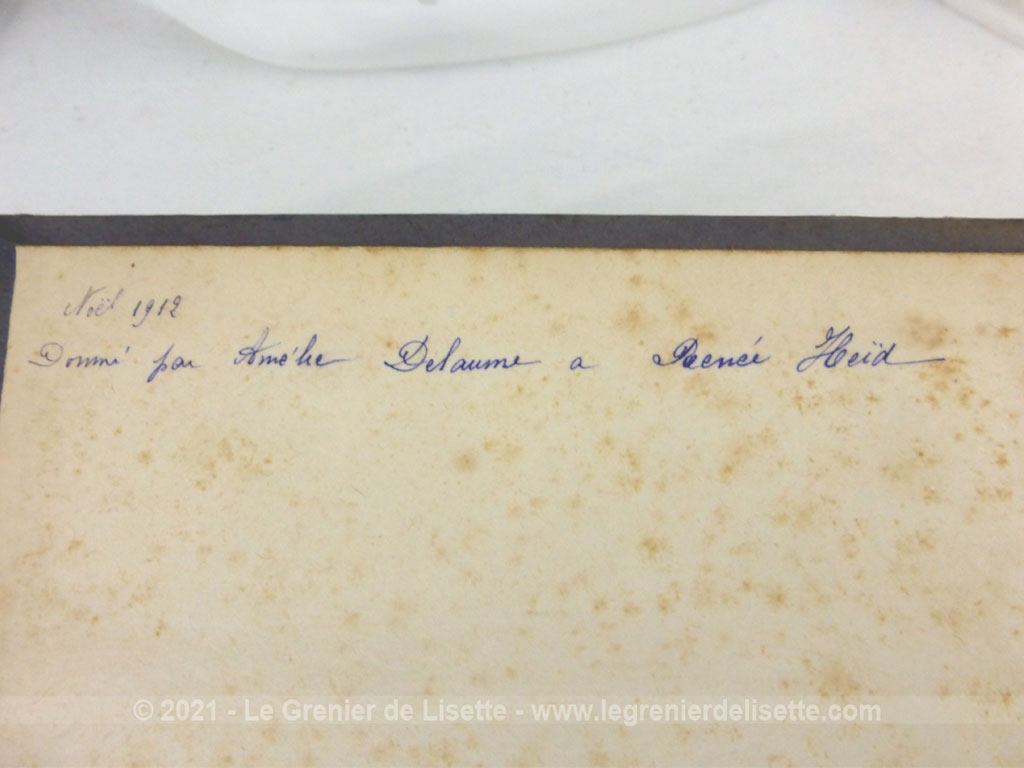 Noël 1912
Donné par Amélie Delaume a Renée Heïd
© 2021 - Le Grenier de Lisette - www.legrenierdelisette.com